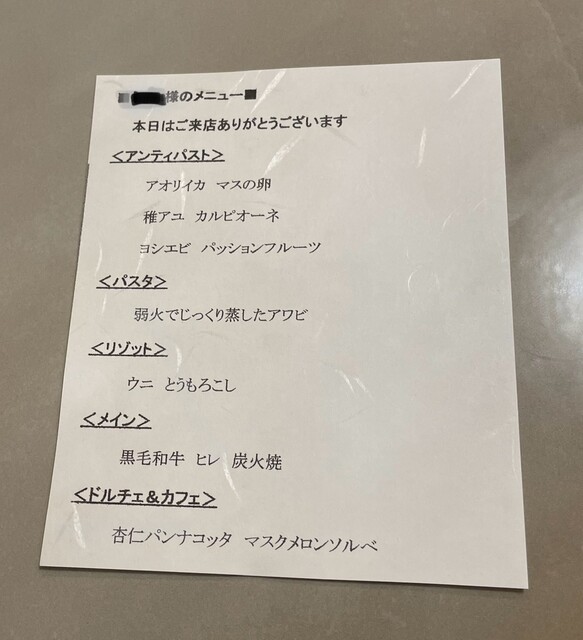 ■様のメニュー■
本日はご来店ありがとうございます
＜アンティパスト＞
アオリイカ マスの卵
稚アユ カルピオーネ
ヨシエビ パッションフルーツ
＜パスタ＞
弱火でじっくり蒸したアワビ
＜リゾット＞
ウニ とうもろこし
＜メイン＞
黒毛和牛 ヒレ 炭火焼
＜ドルチェ＆カフェ＞
杏仁パンナコッタ マスクメロンソルベ